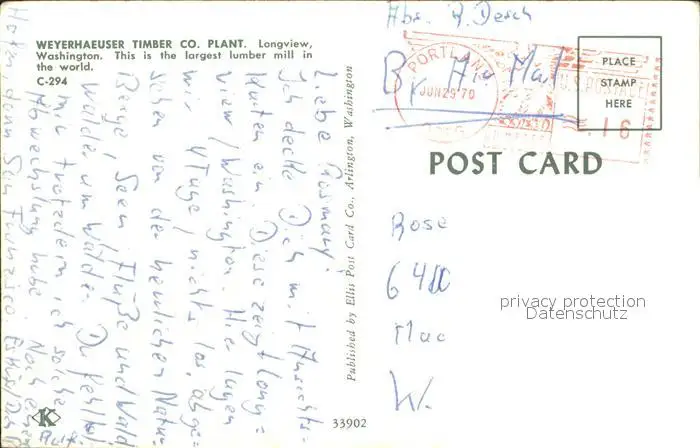 WEYERHAEUSER TIMBER CO. PLANT. Longview,
Washington. This is the largest lumber mill in
the world.
C-294
Liebe Rosmary!
Ich decke Dich mit Ansichts-
karten ein. Diese zeigt Long=
view / Washington. Hier lagen
wir 4 Tage, nichts los, abge=
sehen von der herrlichen Natur.
Berge, Seen, Flüße und Wald
Wälder, um Wälder. Du fehlst
mir trotzdem ich solche
Abwechslung habe. Noch einen
Hafen, dann San Funzisco. Es
Dich
K
33902
Published by Ellis Post Card Co., Arlington, Washington
Abs. R. Desch
By Air Mail
PORTLAND
JUN 29 70
U.S. POSTAGE
.16
PLACE
STAMP
HERE
POST CARD
Rose
Mac
W.
privacy protection
Datenschutz